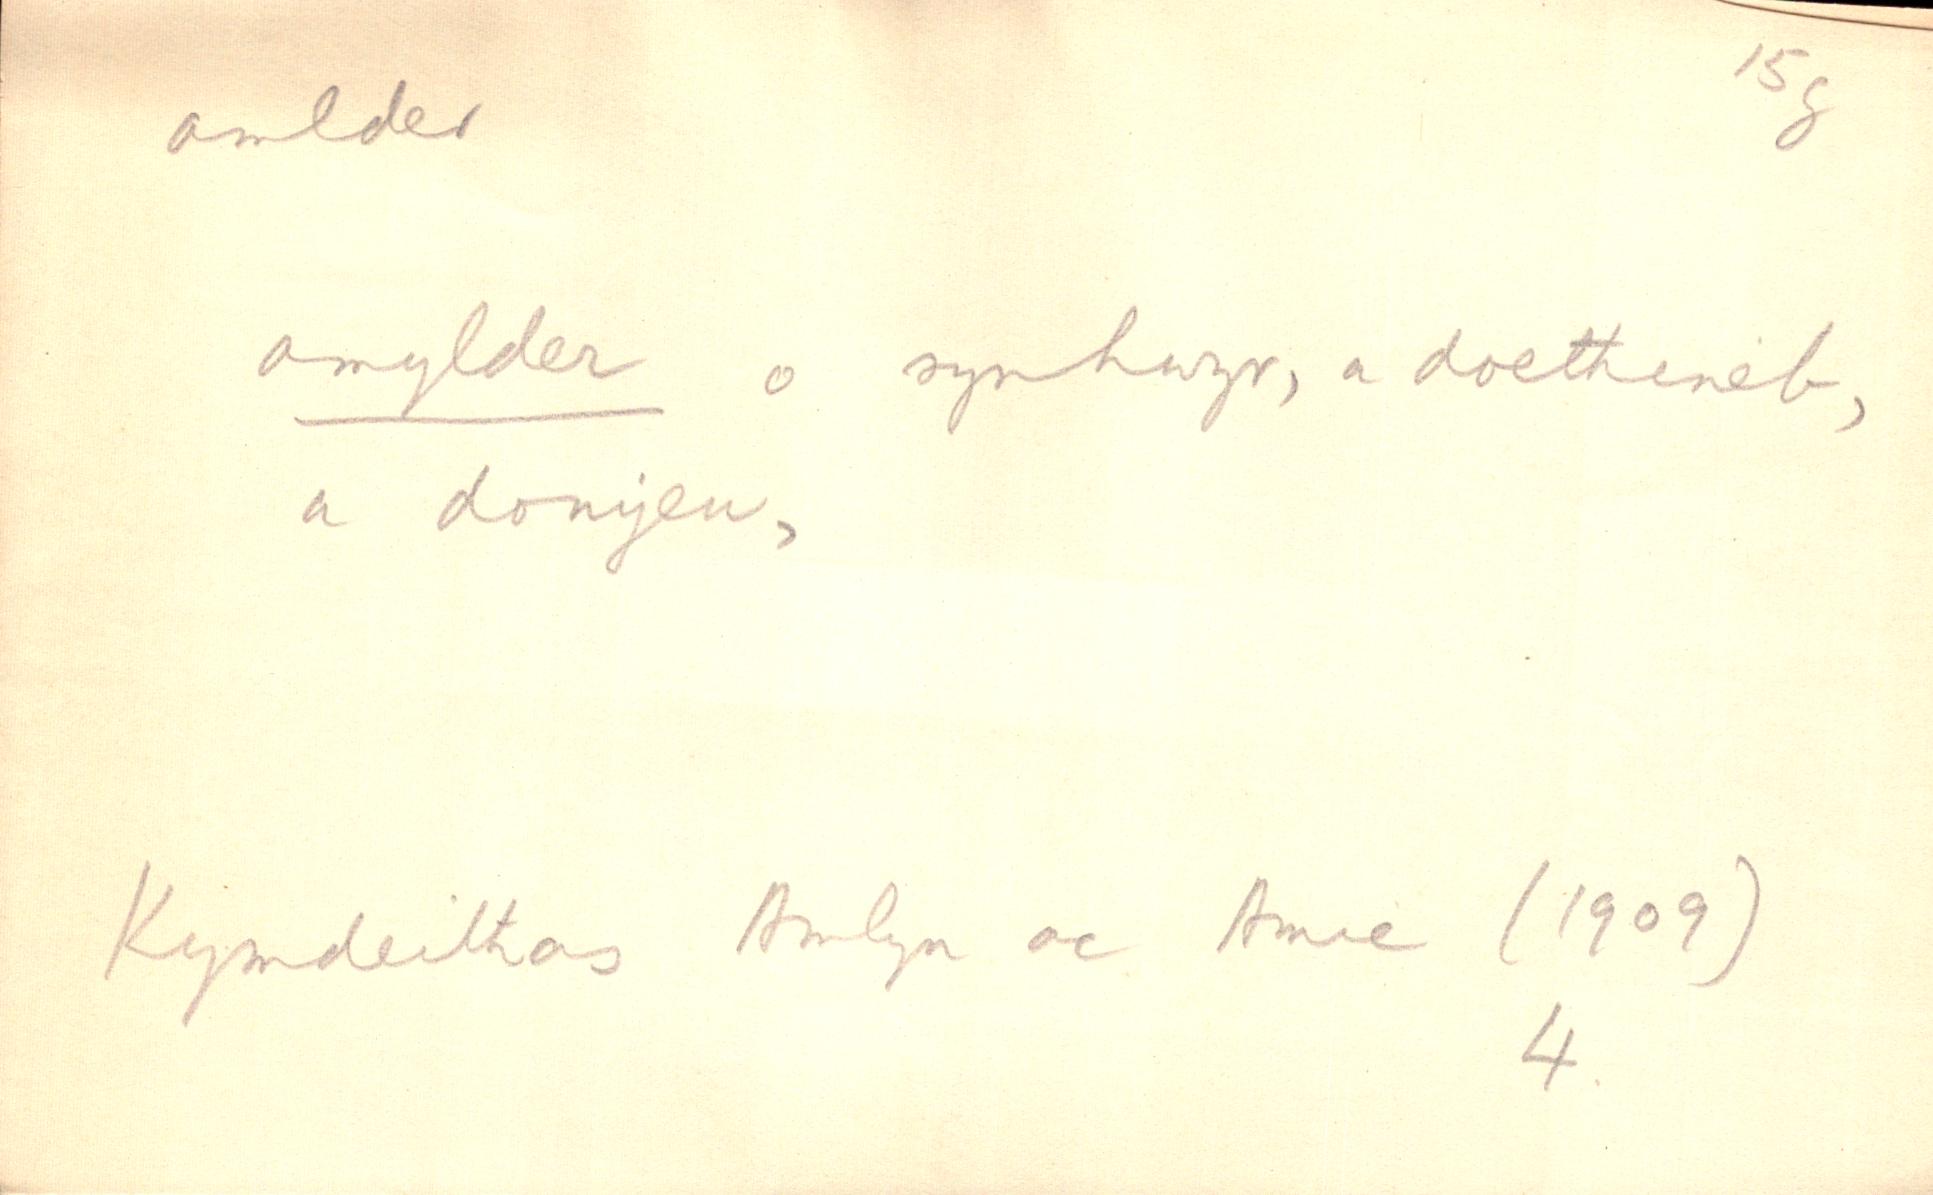 amlder 15g
amylder o synhwyr, a doethineb,
a donyeu,
Kymdeithas Amlyn ac Amic (1909)
4.